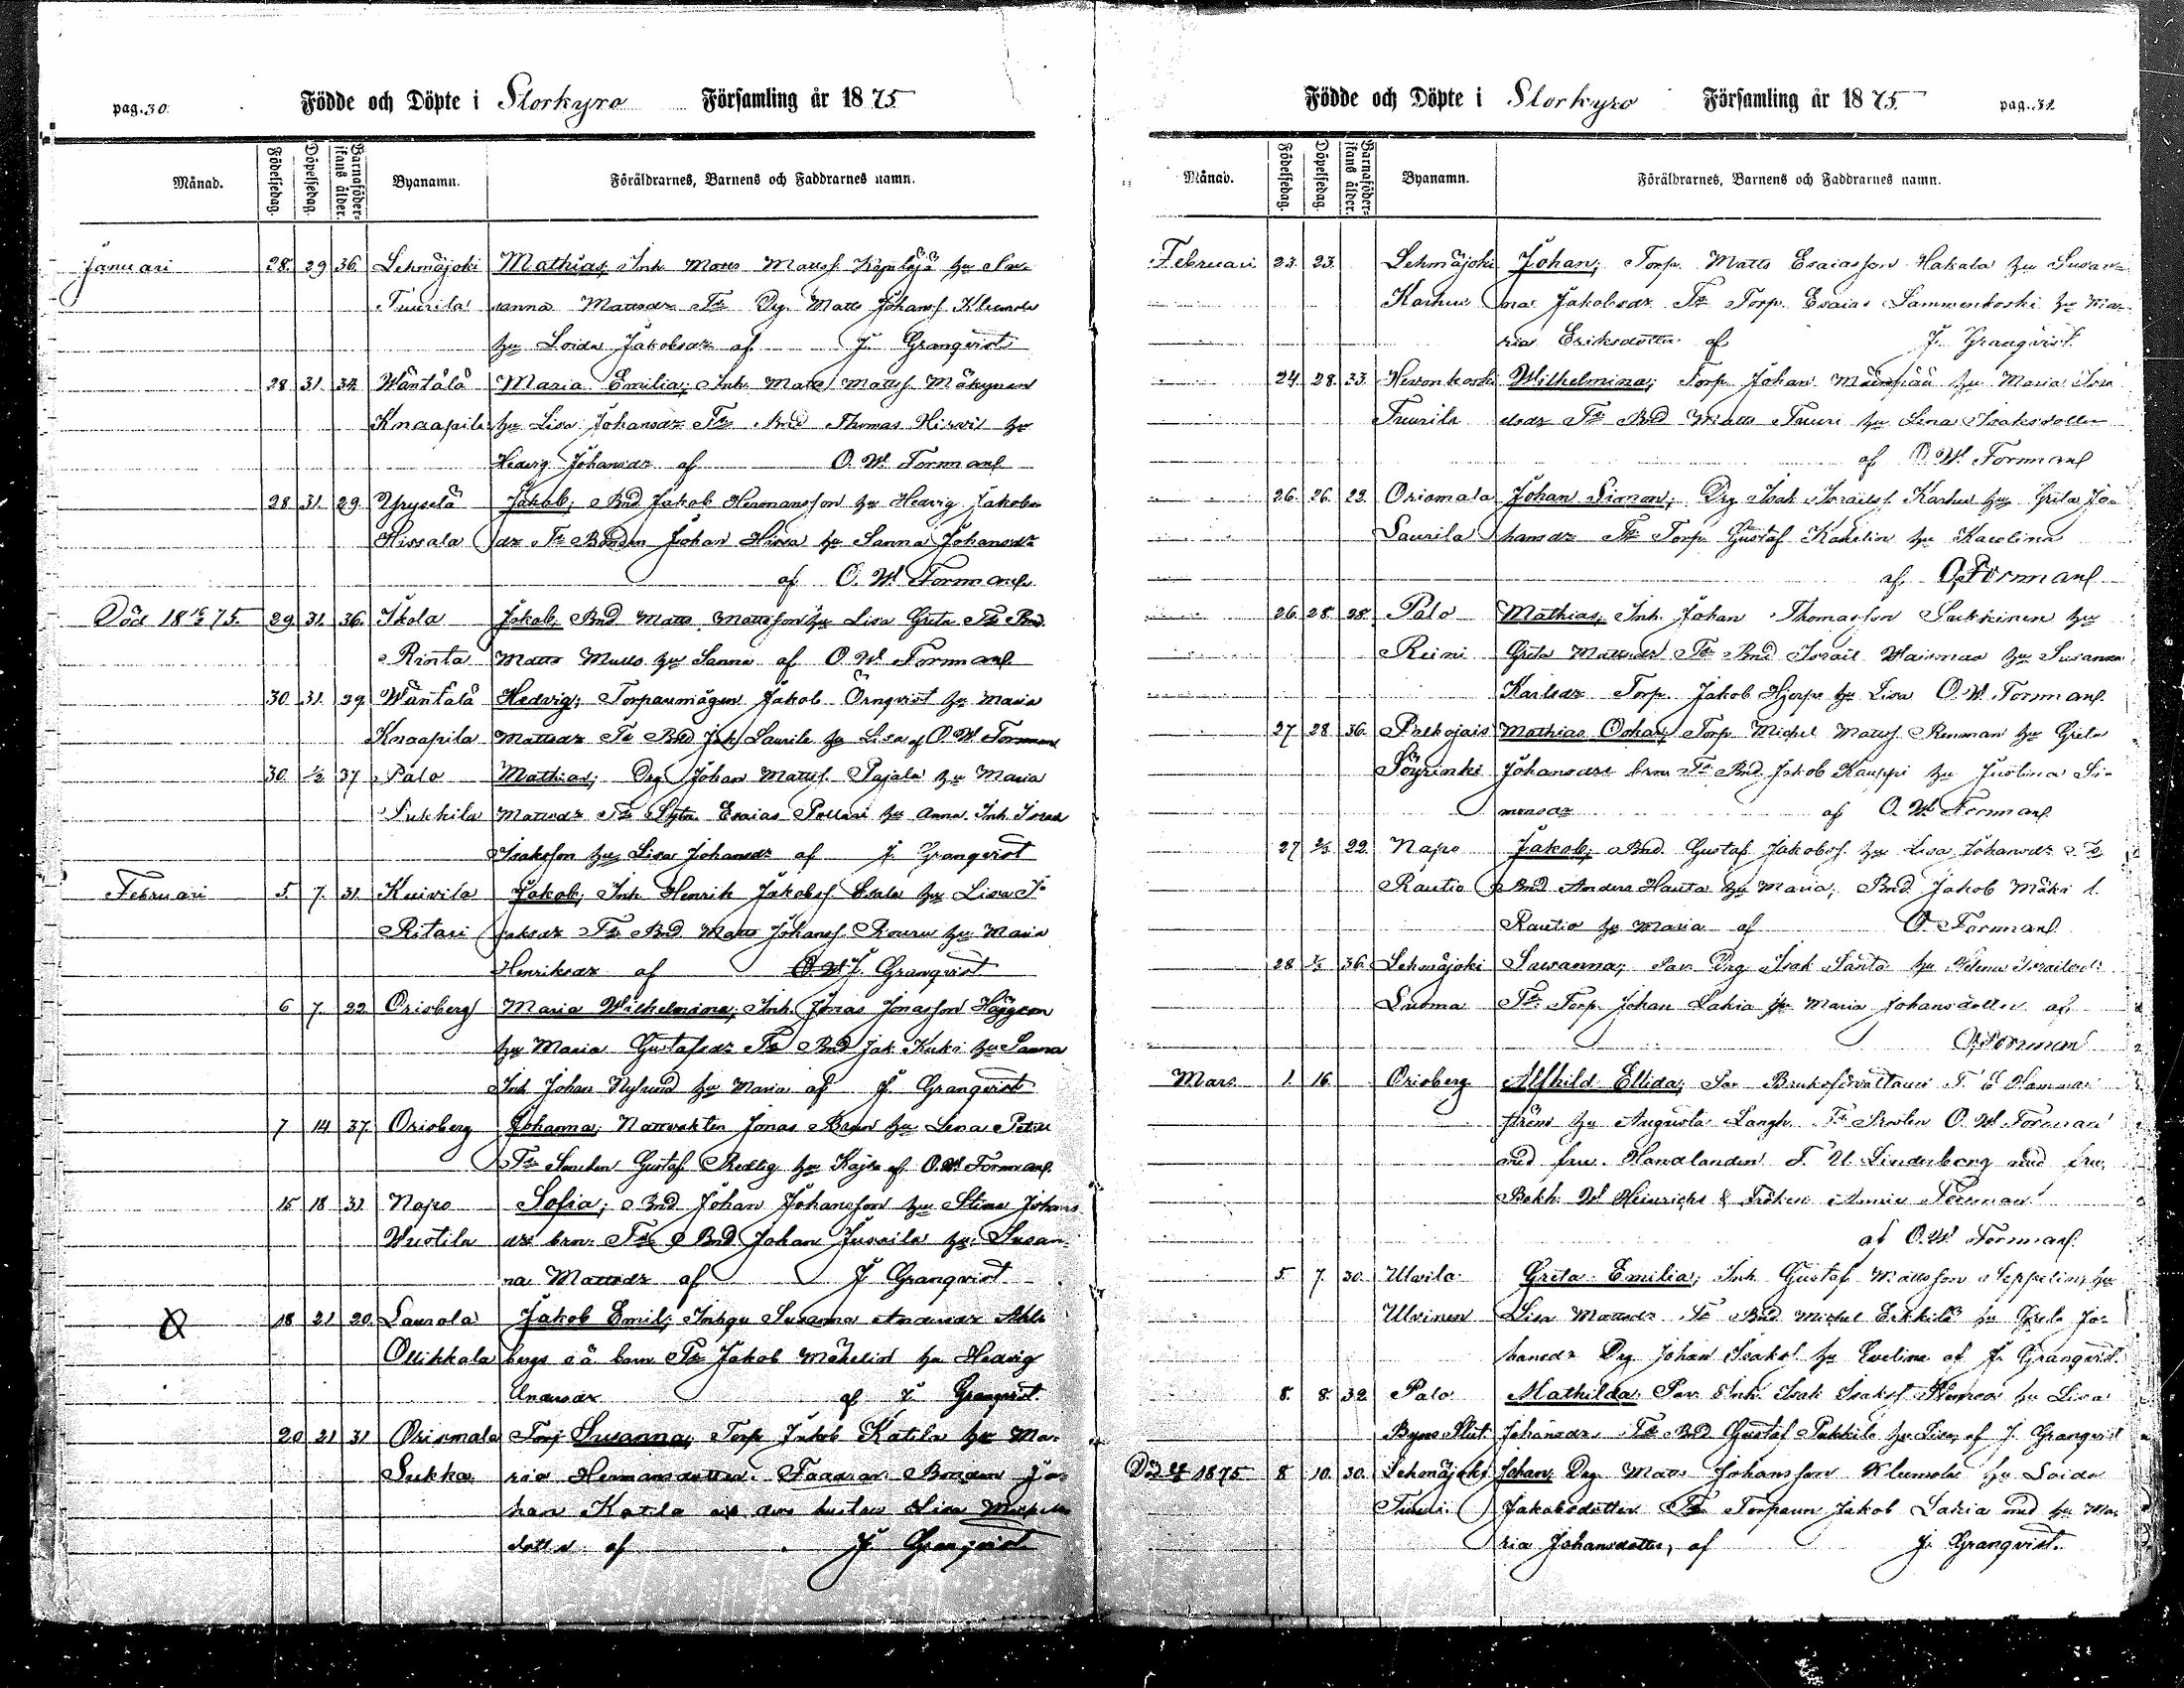 pag. 30.
Födde och Döpte i Storkyro Församling år 1875
Månad. Födelsedag. Döpelsedag. Barnaföder-skans ålder. Byanamn. Föräldrarnes, Barnens och Faddrarnes namn.
Januari 28. 29 36. Lehmäjoki Mathias; Inh. Matts Mattss. hu Su-
Tuurila sanna Mattsdr Fr Drg. Matts Johanss. Klemola
hu Loida Jakobsdr af J. Granqvist
28 31. 34 Wäntälä Maria Emilia; Inh. Matts Mattss. Mäkynen
Knaapila hu Lisa Johansdr Fr Bnd Thomas Hirvi hu
Hedvig Johansdr af O. W. Forsman
28 31. 29. Yryselä Jakob; Bnd Jakob Hermansson hu Hedvig Jakobs-
Hissala dr Fr Bonden Johan Hissa hu Sanna Johansdr
af O. W. Forsman
Död 18 16/2 75. 29 31. 36. Ikola Jakob; Bnd Matts Mattsson hu Lisa Greta Fr Bnd
Rinta Matts hu Sanna af O. W. Forsman
30 31. 39 Wäntälä Hedvig; Torparemågen Jakob Örnqvist hu Maria
Knaapila Mattsdr Fr Bnd Jak. Laurila hu Lisa af O. W. Forsman
30. 1/2 37 Palo Mathias; Drg Johan Mattss. Pajala hu Maria
Pukkila Mattsdr Fr Esaias Pollari hu Anna. Inh. Israel
Isaksson hu Lisa Johansdr af J. Granqvist
Februari 5. 7. 31. Kuivila Jakob; Inh. Henrik Jakobss. hu Lisa
Ritari Fr Bnd Matts Johanss. hu Maria
Henriksdr af J. Granqvist
6 7. 22 Orisberg Maria Wilhelmina; Inh. Jonas Jonasson Häggron
hu Maria Gustafsdr Fr Bnd Jak. Kuki hu Sanna
Inh Johan Nylund hu Maria af J. Granqvist
7 14 37. Orisberg Johanna; Nattvakten Jonas Brun hu Lena
Fr Smeden Gustaf Redlig hu Kajsa af O. W. Forsman
15 18 31 Napo Sofia; Bnd Johan Johansson hu Stina Johans
Wuotila dr Fr Bnd Johan Jussila hu Susan-
na Mattsdr af J. Granqvist
18 21 20. Laurola Jakob Emil; Susanna Andersdr Ahl-
Ollikkala bergs oä barn Fr Jakob hu Hedvig
Andersdr af J. Granqvist.
20 21 31 Orismala Susanna; Torp. Jakob Katila hu Ma-
Sukka ria Hermansdotter. Faddrar: Bonden Jo-
han Katila hustru Lisa Michels-
dotter af J. Granqvist
Födde och Döpte i Storkyro Församling år 1875. pag.
Månad. Födelsedag. Döpelsedag. Barnaföder-skans ålder. Byanamn. Föräldrarnes, Barnens och Faddrarnes namn.
Februari 23. 23. Lehmäjoki Johan; Torp. Matts Esaiasson Hakala hu Susan-
Karhu na Jakobsdr Fr Torp. Esaias Lammenkoski hu Ma-
ria Eriksdotter af J. Granqvist.
24. 28. 33. Hevonkoski Wilhelmina; Torp Johan hu Maria Isra
Tuurila elsdr Fr Bnd Matts Tuuri hu Lena Isaksdotter
af O. W. Forsman
26. 26. 22. Orismala Johan Simon; Drg Isak Israelss. Karhu hu Greta Jo-
Laurila hansdr Fr Torp Gustaf hu Karolina
af O. Forsman
26. 28. 28. Palo Mathias; Inh. Johan Thomasson Sukkinen hu
Reini Greta Mattsdr Fr Bnd Israel Wainmaa hu Susanna
Karlsdr Torp. Jakob Hjerpe hu Lisa O. W. Forsman
27 28 36. Palkojais Mathias Oskar; Torp Michel Mattss. Renman hu Greta
Pöyrinki Johansdr Fr Bnd. Jakob Kauppi hu Justina Si-
monsdr af O. W. Forsman
27 2/3. 22. Napo Jakob; Bnd. Gustaf Jakobss. hu Lisa Johansdr Fr
Rautio Bnd Anders Hauta hu Maria; Bnd. Jakob Mäki l.
Rautio hu Maria af O. Forsman
28 36. Lehmäjoki Susanna; Drg Isak Santo hu Helena Israelsdr
Luoma Fr Torp. Johan Lakia hu Maria Johansdotter af
O. Forsman
Mars 1. 16. Orisberg Alfhild Ellida; Bruksförvaltaren F. E. Hammar-
ströms hu Augusta Langh. Fr O. W. Forsman
med fru. Handlanden F. U. Linderberg med fru,
Bokh. W. Heinrichs & Fröken Forsman
af O. W. Forsman.
5. 7. 30. Ulvila Greta Emilia; Inh. Gustaf Mattsson Seppelin hu
Ulvinen Lisa Mattsdr Fr Bnd Michel Erkkilä hu Greta Jo-
hansdr Drg Johan Isakss. hu Evelina af J. Granqvist.
8. 8. 32. Palo Mathilda Inh. Isak Isakss. hu Lisa
Byns Slut Johansdr Fr Bnd Gustaf Pukkila hu Lisa, af J. Granqvist
Död 1875 8. 10. 30. Lehmäjoki Johan; Drg Matts Johansson Klemola hu Loida
Tuuri Jakobsdotter Fr Torparen Jakob Lakia med hu Ma-
ria Johansdotter, af J. Granqvist.